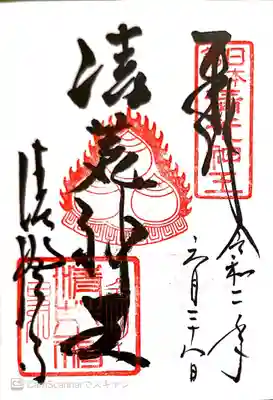 奉拝
令和二年
六月二十八日
清荒神
清澄寺
CamScannerでスキャン